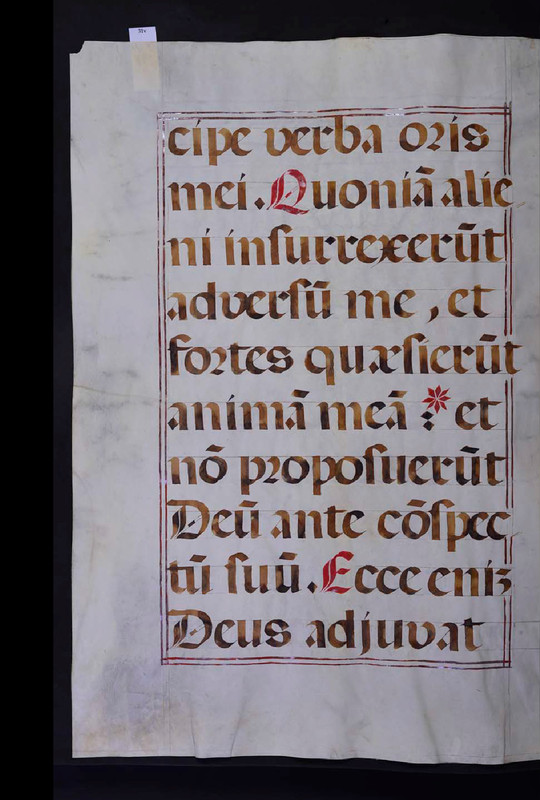 cipe verba oris
mei. Quoniã alie
ni inſurrexerũt
adverſũ me, et
fortes quæſierũt
animã meã : * et
nõ propoſuerũt
Deũ ante cõſpec
tũ ſuũ. Ecce eniʒ
Deus adjuvat